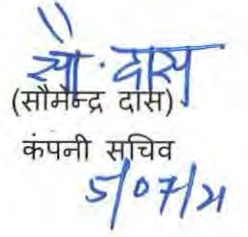 सौ. दास
(सौमेन्द्र दास)
कंपनी सचिव
5/07/21